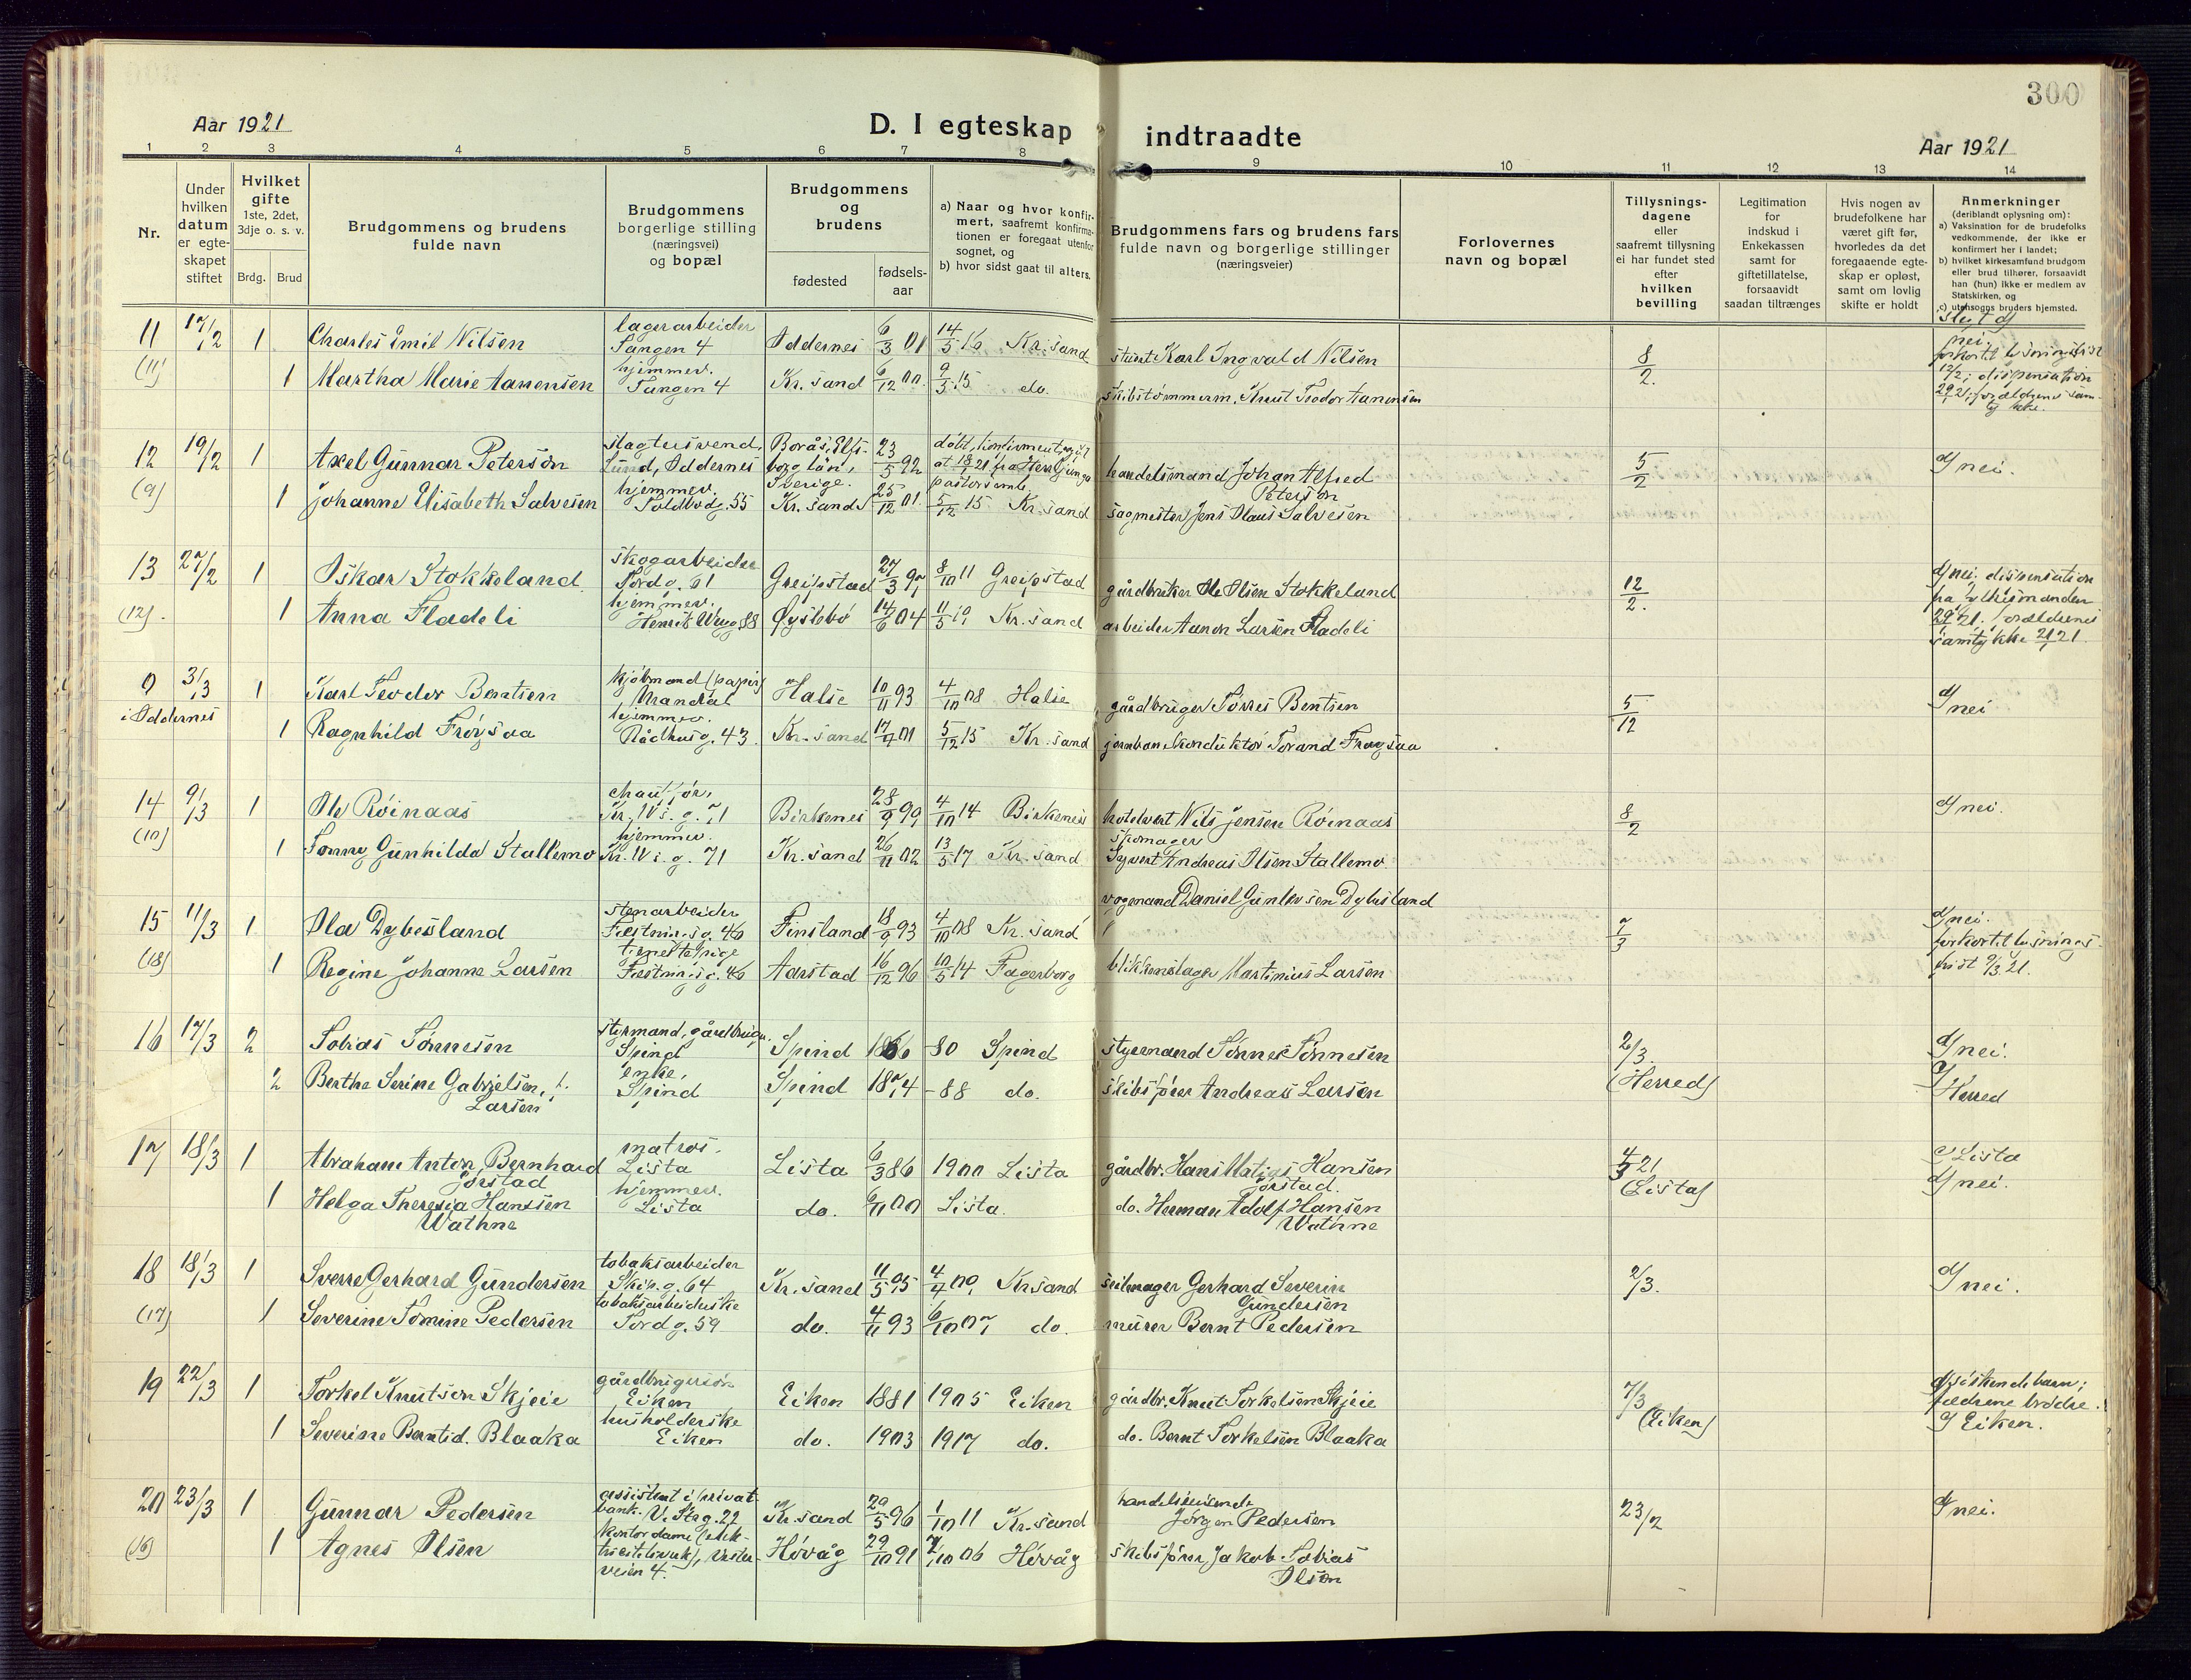 300
Aar 1921
D. I egteskap indtraadte
Aar 1921
1 2 3 4 5 6 7 8 9 10 11 12 13 14
Nr.
Under hvilken datum er egte- skapet stiftet
Hvilket gifte 1ste, 2det, 3dje o. s. v.
Brdg. Brud
Brudgommens og brudens fulde navn
Brudgommens borgerlige stilling (næringsvei) og bopæl
Brudgommens og brudens
fødested
fødsels- aar
a) Naar og hvor konfir- mert, saafremt konfirma- tionen er foregaat utenfor sognet, og b) hvor sidst gaat til alters.
Brudgommens fars og brudens fars fulde navn og borgerlige stillinger (næringsveier)
Forlovernes navn og bopæl
Tillysnings- dagene eller saafremt tillysning ei har fundet sted efter hvilken bevilling
Legitimation for indskud i Enkekassen samt for giftetillatelse, forsaavidt saadan tiltrænges
Hvis nogen av brudefolkene har været gift før, hvorledes da det foregaaende egte- skap er opløst, samt om lovlig skifte er holdt
Anmerkninger (deriblandt oplysning om): a) Vaksination for de brudefolks vedkommende, der ikke er konfirmert her i landet; b) hvilket kirkesamfund brudgom eller brud tilhører, forsaavidt han (hun) ikke er medlem av Statskirken, og c) utensogns bruders hjemsted.
11 17/2 1 Charles Emil Nilsen lagerarbeider Tangen 4 Oddernes 6/3 01 14/5 16 Kr.sand Karl Ingvald Nilsen 8/2. nei.
(11) 1 Martha Marie Aanensen hjemmev. Tangen 4 Kr.sand 6/12 00 9/5 15 do. skibstømmerm. Knut Teodor Aanensen 12/2; dispensation
12 19/2 1 Axel Gunnar Peterson slagtersvend, Lund, Oddernes Borås, Elfs- borg län, Sverige. 23/5 92 handelsmand Johan Alfred Peterson 5/2 nei.
(9) 1 Johanne Elisabeth Salvesen hjemmev. Toldbodg. 55 Kr.sand 25/12 01 5/12 15 Kr.sand sagmester Jens Olaus Salvesen
13 27/2 1 Oskar Stokkeland skogarbeider Tordg. 61 Greipstad 27/3 97 8/10 11 Greipstad gårdbruker Ole Olsen Stokkeland 12/2. nei. dispensation fra fylkesmanden
(12). 1 Anna Fladeli hjemmev. Henrik Wergg. 88 Øyslebø 14/6 04 11/5 19 Kr.sand arbeider Aanon Larsen Fladeli forældrenes samtykke
9 31/3 1 Karl Teodor Bentsen kjøbmand (papir) Mandal Halse 10/11 93 4/10 08 Halse gårdbruger Tørres Bentsen 5/12 nei
i Oddernes 1 Ragnhild Frøysaa hjemmev. Rådhusg. 43. Kr.sand 5/12 15 Kr.sand jernbanekonduktør Torand Frøysaa
14 9/3 1 Ole Röinaas chauffør, Kr. IVs. g. 71 Birkenes 28/9 99 4/10 14 Birkenes hotelvert Nils Jensen Röinaas 8/2 nei.
(10) 1 Tonny Gunhilda Stallemo hjemmev. Kr. IVs. g. 71 Kr.sand 26/11 02 13/5 17 Kr.sand skomager Syvert Andreas Olsen Stallemo
15 11/3 1 Ola Dybesland stenarbeider Fæstningsg. 46 Finsland 18/9 93 4/10 08 Kr.sand vognmand Daniel Gunlevsen Dybesland 7/3 nei. forkortet lysnings-
(18) 1 Regine Johanne Larsen tjenestepige Fæstningsg. 46 Aarstad 16/12 96 10/5 14 Fagerborg blikkenslager Martinius Larsen frist 9/3 21.
16 17/3 2 Tobias Tønnesen styrmand, gårdbruger. Spind Spind 1866 80 Spind styrmand Tønnes Tønnesen 2/3. nei.
2 Berthe Serine Gabrielsen, f. Larsen enke, Spind Spind 1874 -88 do. skibsfører Andreas Larsen (Herred) Herred
17 18/3 1 Abraham Anton Bernhard Jørstad matros. Lista Lista 6/3 86 1900 Lista gårdbr. Hans Matias Hansen Jørstad. 4/3 21 Lista
1 Helga Theresia Hansen Wathne hjemmev. Lista do. 6/11 00 Lista. do. Herman Adolf Hansen Wathne (Lista) nei.
18 18/3 1 Sverre Gerhard Gundersen tobaksarbeider Skip.g. 64 Kr.sand 11/5 95 4/4 09 Kr.sand seilmager Gerhard Severin Gundersen 2/3. nei.
(17) 1 Severine Tomine Pedersen tobaksarbeiderske Tordg. 59 do. 4/11 93 6/10 07 do. murer Bernt Pedersen
19 22/3 1 Torkel Knutson Skjeie gårdbrugersøn Eiken Eiken 1881 1905 Eiken gårdbr. Knut Torkelsen Skjeie 7/3 søskendebarn; fædrene brødre.
1 Severine Berntsd. Blaaka husholderske Eiken do. 1903 1917 do. do. Bernt Torkelsen Blaaka (Eiken) Eiken.
20 23/3 1 Gunnar Pedersen assistent i privat- bank. V. Strg. 22 Kr.sand 29/5 96 1/10 11 Kr.sand handelsreisende Jørgen Pedersen 23/2 nei.
(16) 1 Agnes Olsen kontordame (elek- tricitetsverk), Vester- veien 4. Høvåg 29/10 91 7/10 06 Høvåg skibsfører Jakob Tobias Olsen